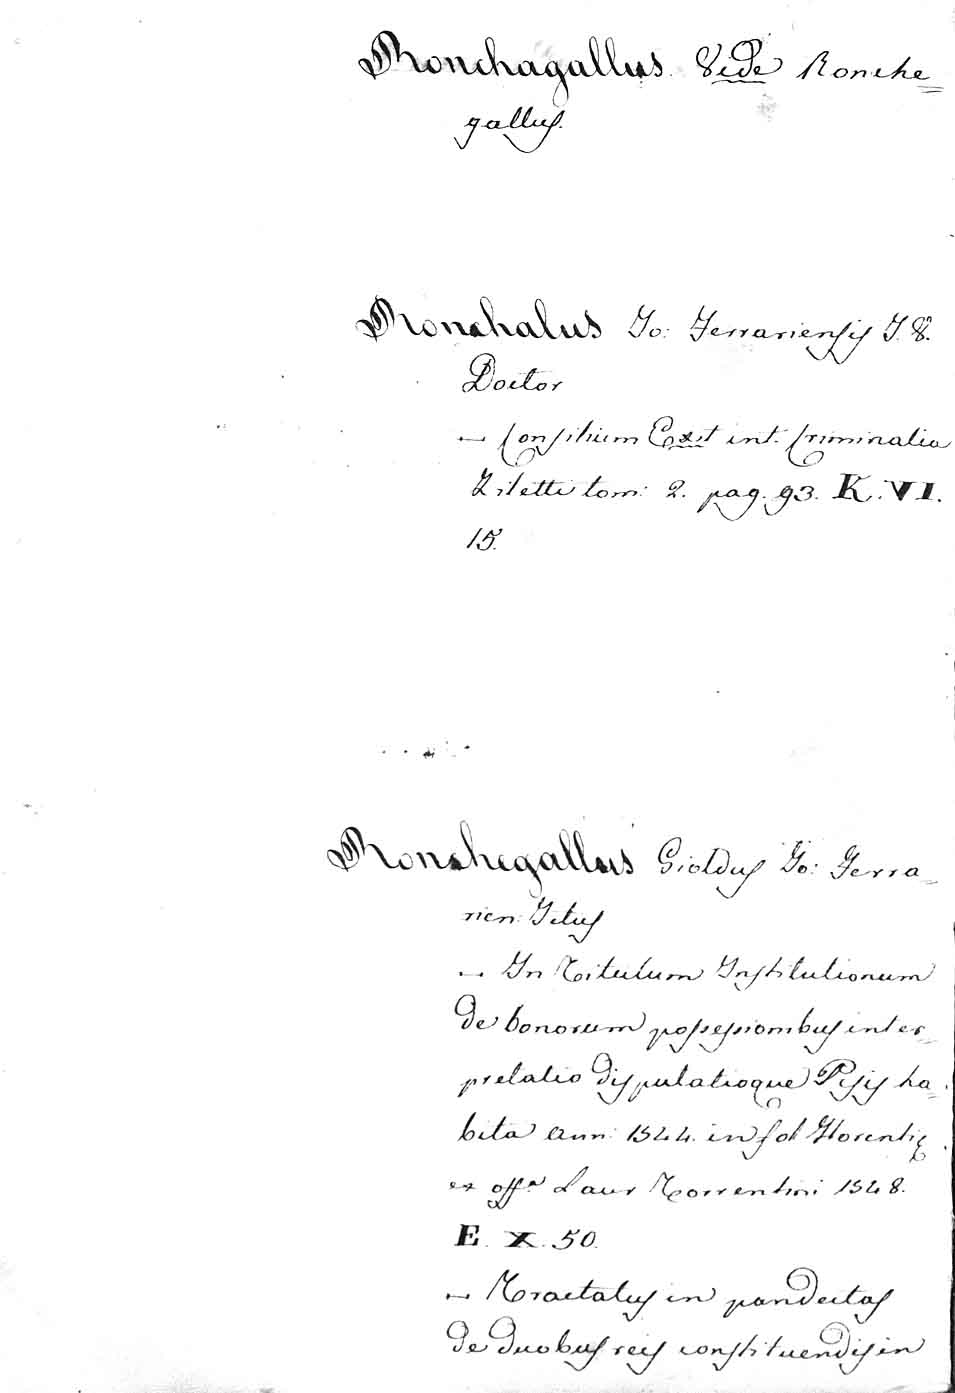 Ronchagallus. Vide Ronche=
gallus.
Ronchalus Jo: Ferrariensis J. V.
Doctor
— Consilium Exit int. Criminalia
Ziletti tom: 2. pag. 93. K. VI.
15.
Ronchegallus Gioldus Jo: Ferra=
rien: Jctus
— In Titulum Institutionum
de bonorum possessionibus inter=
pretatio disputatioque Pisis ha=
bita ann: 1544. in fol Florentię
ex offa Laur Torrentini 1548.
E. X. 50.
— Tractatus in pandectas
de duobus reis constituendis in